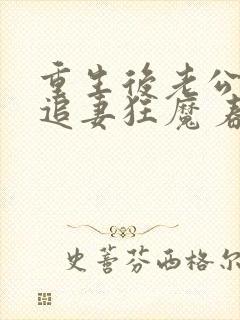 重生後老公
追妻狂魔
史蒈芬西格尔